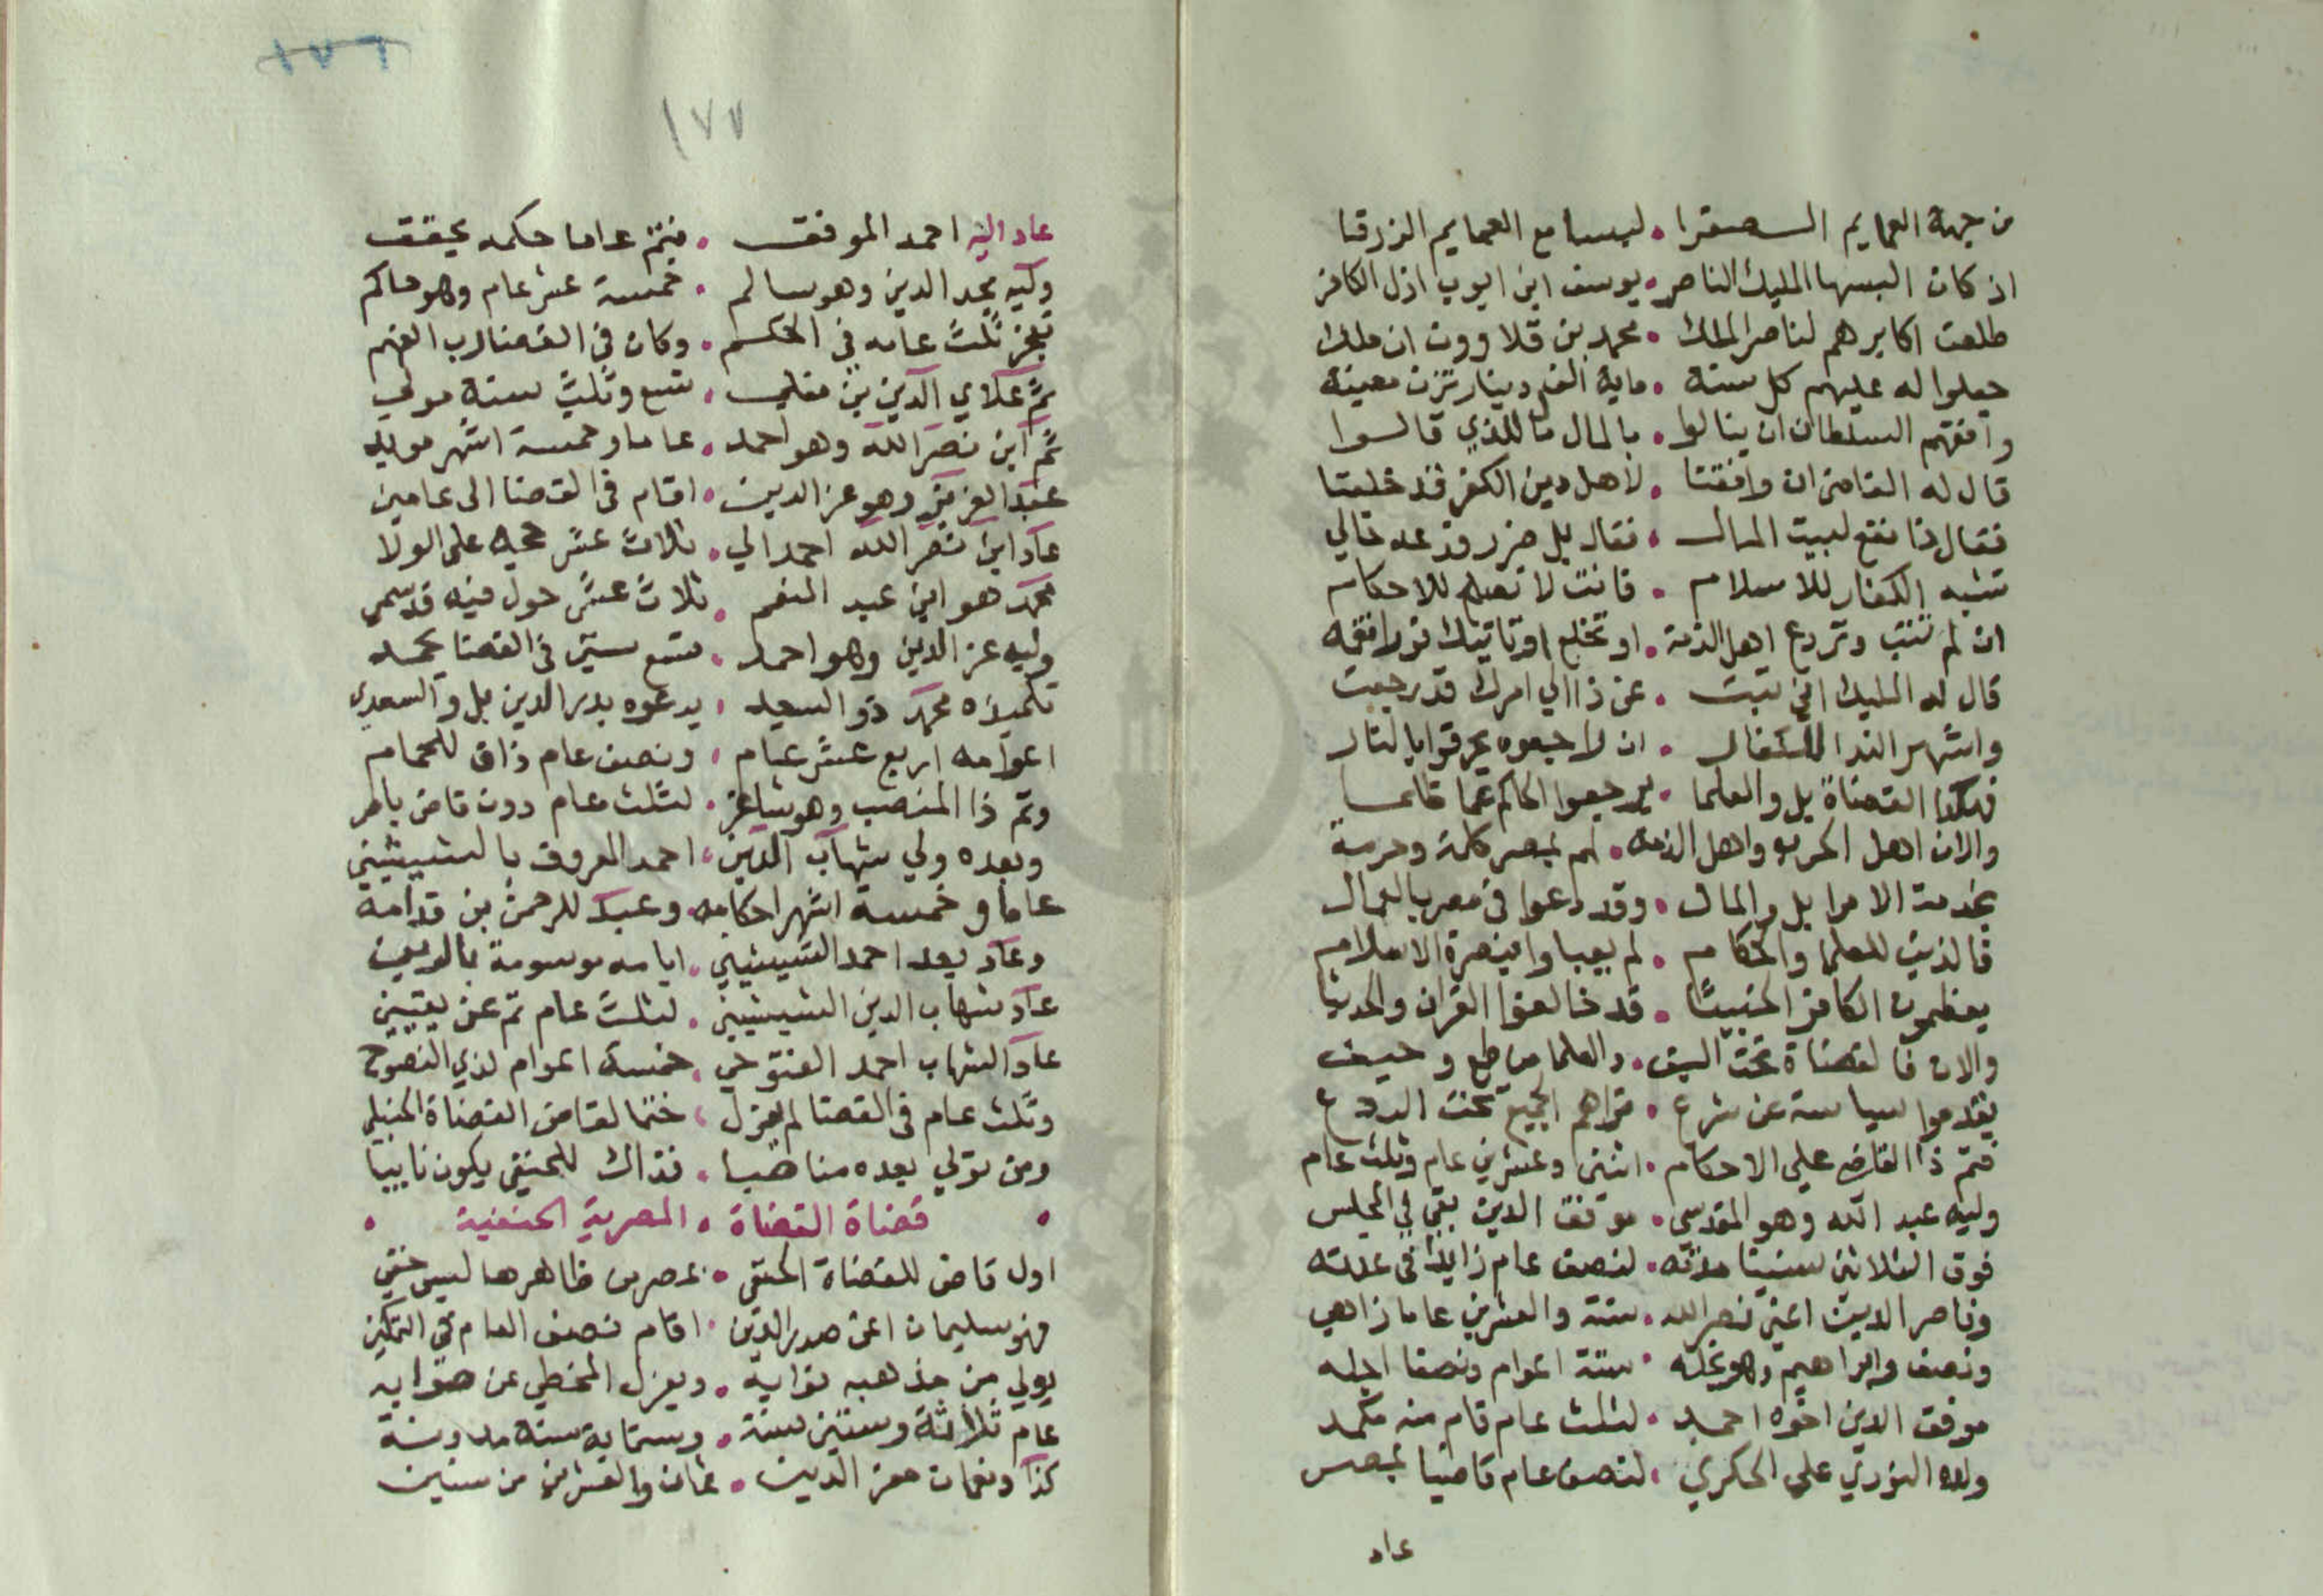 من جهة العمايم الصفرا • لبسا مع العمايم الزرقا
اذ كان البسها المليك الناصر • يوسف ابن ايوب اذل الكافر
طلعت اكابرهم لناصر الملك • محمد بن قلاوون ان ملك
جعلوا له عليهم كل سنة • ماية الف دينار تزن معينة
وافقهم السلطان ان ينالوا • بالمال ما للذي قالوا
قال له القاضي ان وافقتا • لاهل دين الكفر قد خلعتا
فقال ذا نفع لبيت المال • فقال بل ضرر
تشبه الكفار للاسلام • فانت لا تصلح للاحكام
ان لم تتب وتردع اهل الذمة • او تخلع
قال له المليك اني تبت • عن ذا الي امرك قد رجعت
واشهر الندا • ان لا جعوه يحرقوا بالنار
القضاة بل والعلما • يرجعوا الحاكم عما
والان اهل الحرب واهل الذمة • لهم بمصر كلمة وحرمة
بخدمة الامرا بل والمال • وقد دعوا في مصر بالعمال
فالذين للعلما والحكام • لم يعباوا بنصرة الاسلام
يعظمون الكافر الخبيثا • قد خالفوا القران والحديثا
والان فالقضاة تحت السيف • والعلما من طمع وحيف
يقدموا سياسة عن شرع • تراهم الجميع تحت الردع
فتم ذا القاضي علي الاحكام • اثنى وعشرين عام وثلث عام
وليه عبد الله وهو المقدسي • موفق الدين بقي في المجلس
فوق الثلاثين سنينا مدته • لنصف عام زايدا في عدته
وناصر الدين اعني نصر الله • ستة والعشرين عاما زاهي
ونصف وابراهيم وهو نجله • ستة اعوام ونصفا اجله
موفق الدين اخوه احمد • لثلث عام قام منه مكمد
ولاه النوري علي الحكري • لنصف عام قاضيا بمصر
عاد
١٧٦
١٧٧
عاد اليه احمد الموفق • فتم عاما حكمه تحقق
وليه مجد الدين وهو سالم • خمسة عشر عام وهو حاكم
ثلث عامه في الحكم • وكان في القضا رب الفهم
ثم علاي الدين بن مغلي • تسع وثلث سنة مولي
ثم ابن نصر الله وهو احمد • عاما وخمسة اشهر مويد
عبد العزيز وهو عز الدين • اقام في القضا الى عامين
عاد ابن نصر الله احمد الي • ثلاث عشر حجة على الولا
محمد هو ابن عبد المنعم • ثلاث عشر حول فيه قد سمي
وليه عز الدين وهو احمد • تسع سنين في القضا يحمد
تلميذه محمد ذو السعد • يدعوه بدر الدين بل والسعدي
اعوامه اربع عشر عام • ونصف عام ذاق للحمام
وتم ذا المنصب وهو شاغر • لثلث عام دون قاض
وبعده ولي شهاب الدين • احمد المعروف بالشيشيني
عاما وخمسة اشهر احكامه • وعبد للرحمن بن قدامه
وعاد بعد احمد الشيشيني • ايامه موسومة
عاد شهاب الدين الشيشيني • لثلث عام تم عن يقين
عاد الشهاب احمد الفتوحي • خمسة اعوام لذي النصوح
وثلث عام في القضا لم يعزل • ختما لقاضي القضاة الحنبلي
ومن تولي بعده مناصبا • فذاك للحنفي يكون نايبا
• قضاة القضاة • المصرية الحنفية •
اول قاض للقضاة الحنفي • بمصر من ظاهرها ليس خفي
فهو سليمان اعني صدر الدين • اقام نصف العام في التمكين
يولي من مذهبه نوابه • ويعزل المخطي عن صوابه
عام ثلاثة وستين سنة • وستماية سنة مدونة
كذا ونعمان معز الدين • ثمان والعشرين من سنين